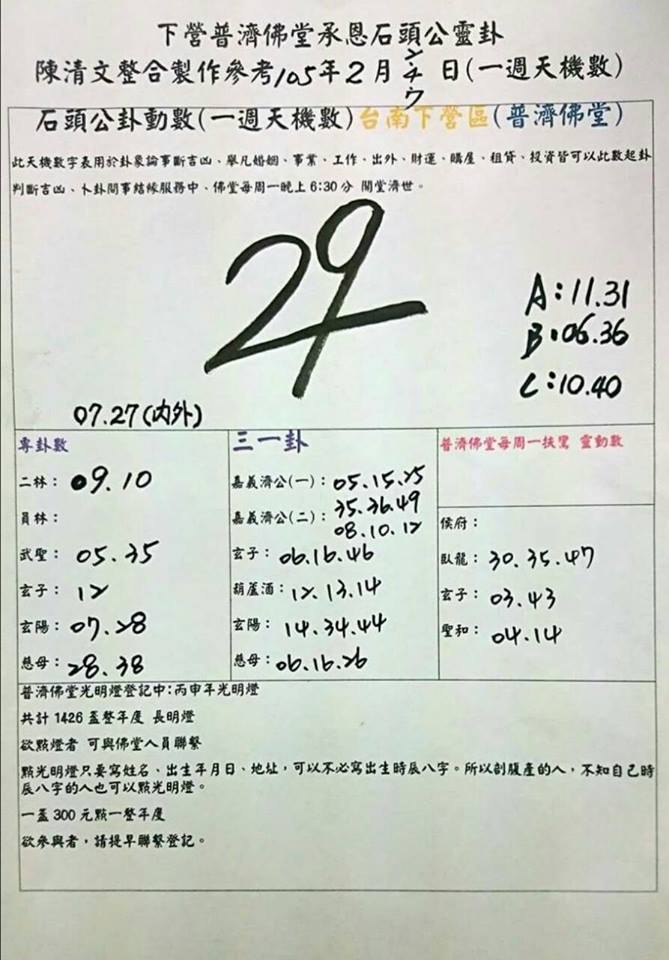 下營普濟佛堂承恩石頭公靈卦
陳清文整合製作參考105年2月 日(一週天機數)
石頭公卦動數(一週天機數)台南下營區(普濟佛堂)
此天機數字表用於卦象論事斷吉凶、舉凡婚姻、事業、工作、出外、財運、購屋、租賃、投資皆可以此數起卦
判斷吉凶、卜卦問事結緣服務中、佛堂每周一晚上6:30分 開堂濟世。
29
A:11.31
B:06.36
C:10.40
07.27(內外)
專卦數
二林:09.10
員林:
武聖:05.35
玄子:12
玄陽:07.28
慈母:28.38
三一卦
嘉義濟公(一):05.15.25
35.36.49
嘉義濟公(二):08.10.12
玄子:06.16.46
葫蘆酒:12.13.14
玄陽:14.34.44
慈母:06.16.26
普濟佛堂每周一扶鸞 靈動數
侯府:
臥龍:30.35.47
玄子:03.43
聖和:04.14
普濟佛堂光明燈登記中:丙申年光明燈
共計1426盞整年度 長明燈
欲點燈者 可與佛堂人員聯繫
點光明燈只要寫姓名、出生年月日、地址,可以不必寫出生時辰八字。所以剖腹產的人,不知自己時
辰八字的人也可以點光明燈。
一盞300元點一整年度
欲參與者,請提早聯繫登記。